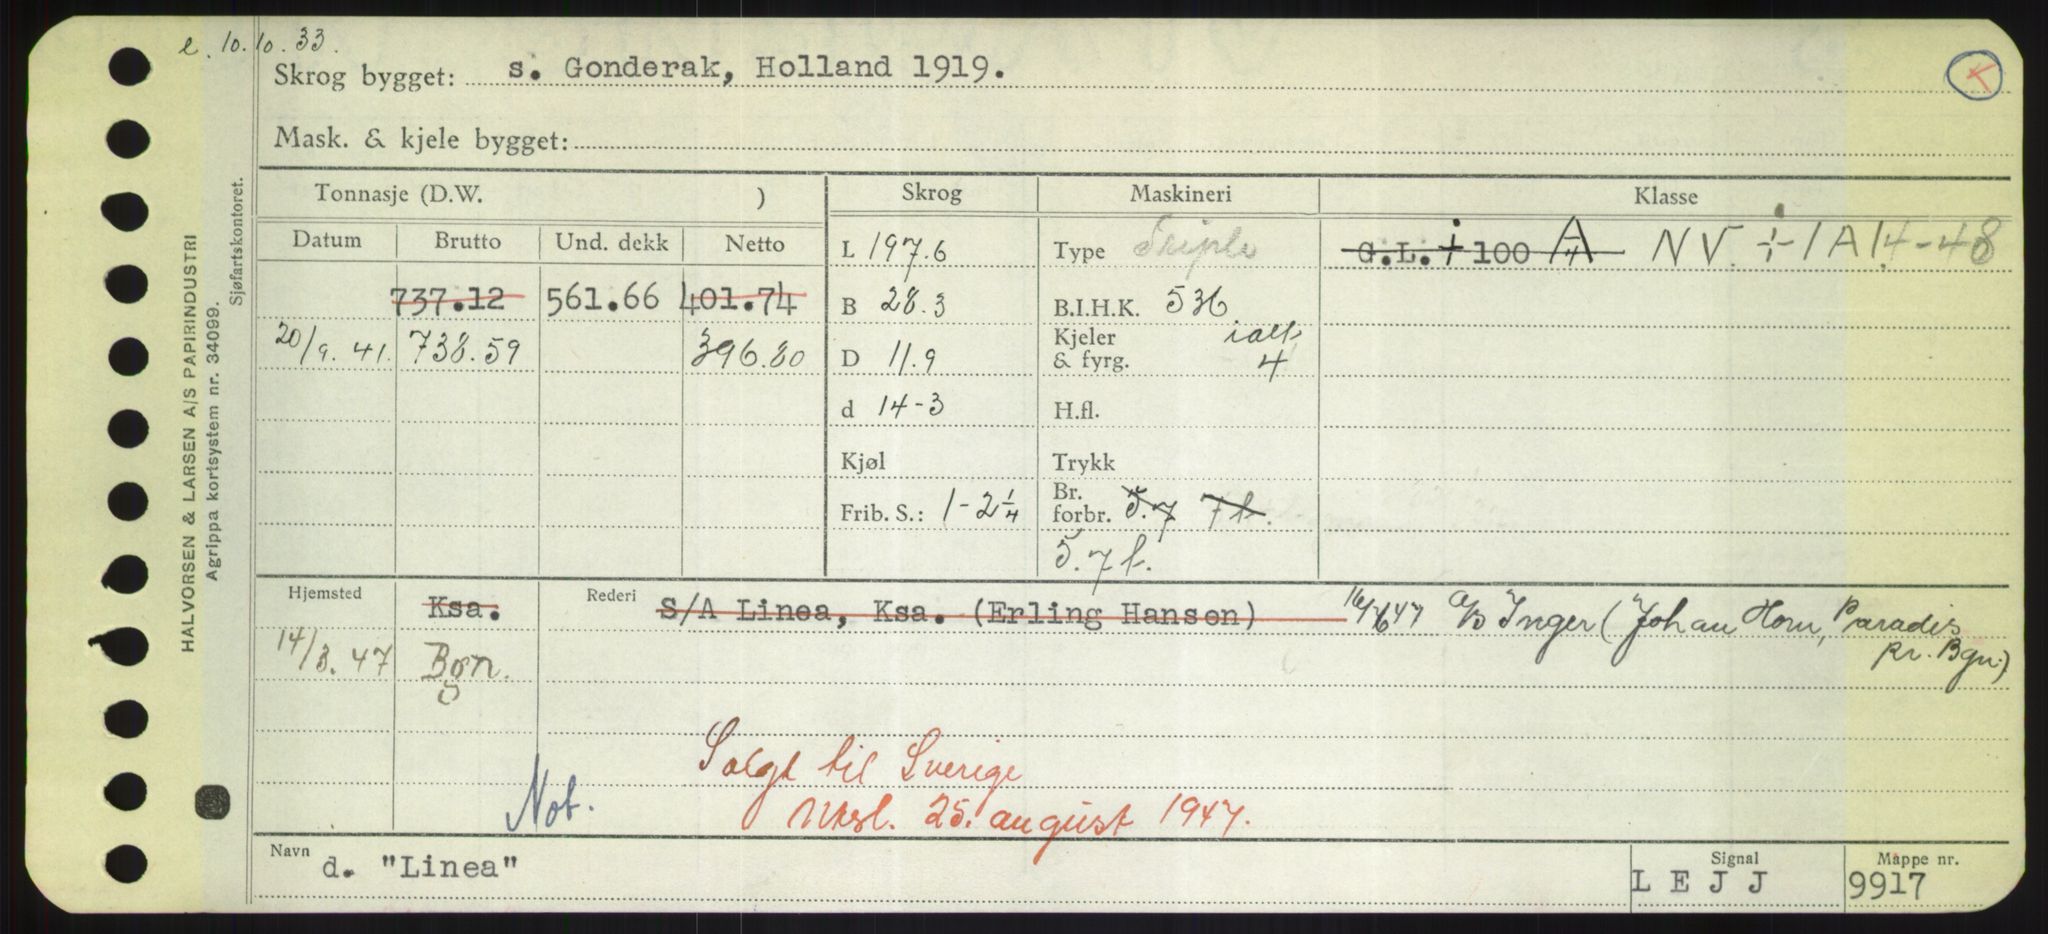 e. 10.10.33.
Skrog bygget: s. Gonderak, Holland 1919.
Mask. & kjele bygget:
HALVORSEN & LARSEN A/S PAPIRINDUSTRI
Agrippa kortsystem nr. 34099.
Sjøfartskontoret.
Tonnasje (D.W. ) Skrog Maskineri Klasse
Datum Brutto Und. dekk Netto
L 197.6 Type Triple G.L. + 100 A/4 NV + 1A1 4-48
737.12 561.66 401.74 B 28.3 B.I.H.K. 536
20/9.41. 738.59 396.80 D 11.9 Kjeler & fyrg. ialt 4
d 14-3 H.fl.
Kjøl Trykk
Frib. S.: 1-2 1/4 Br. forbr. 5.7 7t.
5.7 t.
Hjemsted Ksa. Rederi S/A Linea, Ksa. (Erling Hansen) 16/6 47 A/S Inger (Johan Horn, Paradis
pr. Bgn.)
14/3.47 Bgn.
Solgt til Sverige
Not. Uksl. 25. august 1947.
Navn d. "Linea" Signal L E J J Mappe nr. 9917